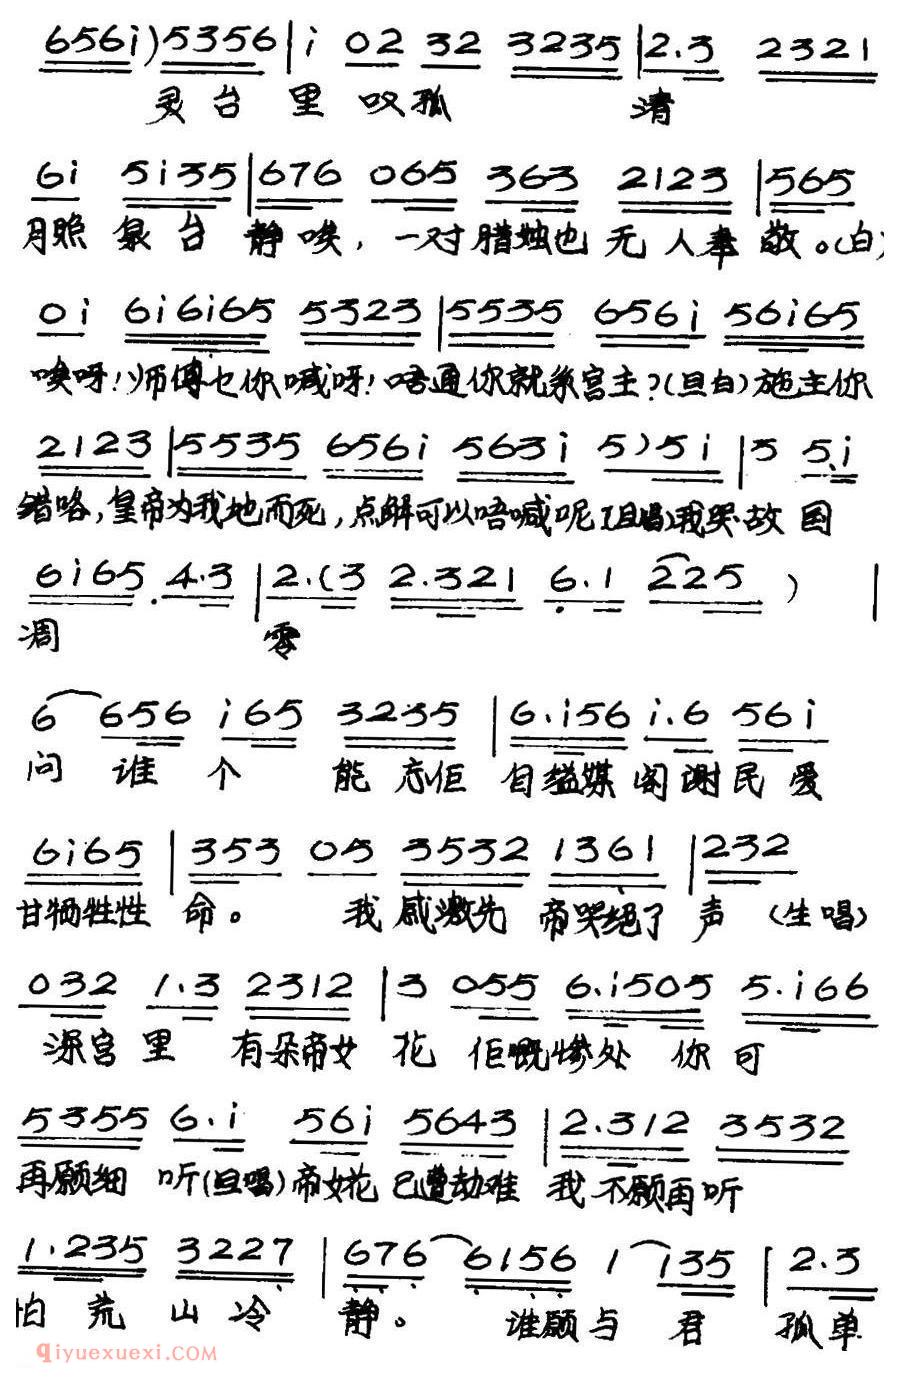 656i) 5356 | i 02 32 3235 | 2.3 2321
灵台里叹孤 清
6i 5i35 | 676 065 363 2123 | 565
月照泉台静唉，一对腊烛也无人奉敬。(白)
0i 6i6i65 5323 | 5535 656i 56i65
唉呀！师傅乜你喊呀！唔通你就系宫主？(旦白)施主你
2123 | 5535 656i 563i 5)5i | 3 5.i
错咯，皇帝为我地而死，点解可以唔喊呢(旦唱)我哭故国
6i65. 4.3 | 2.(3 2.321 6.1 225 ) |
凋 零
6 656 i65 3235 | 6.i56 i.6 56i
问谁个 能忘佢 自缢媒 阁谢民爱
6i65 | 353 05 3532 1361 | 232
甘牺牲性 命。 我感激先 帝哭绝了 声 (生唱)
032 1.3 2312 | 3 055 6.i505 5.i66
深宫里 有朵帝女 花 佢嘅惨处 你可
5355 6.i 56i 5643 | 2.312 3532
再愿细 听(旦唱)帝女花 已遭劫难 我不愿再听
1.235 3227 | 676 6156 1 135 | 2.3
怕荒山冷 静。 谁愿与君 孤单
qiyuexuexi.COM